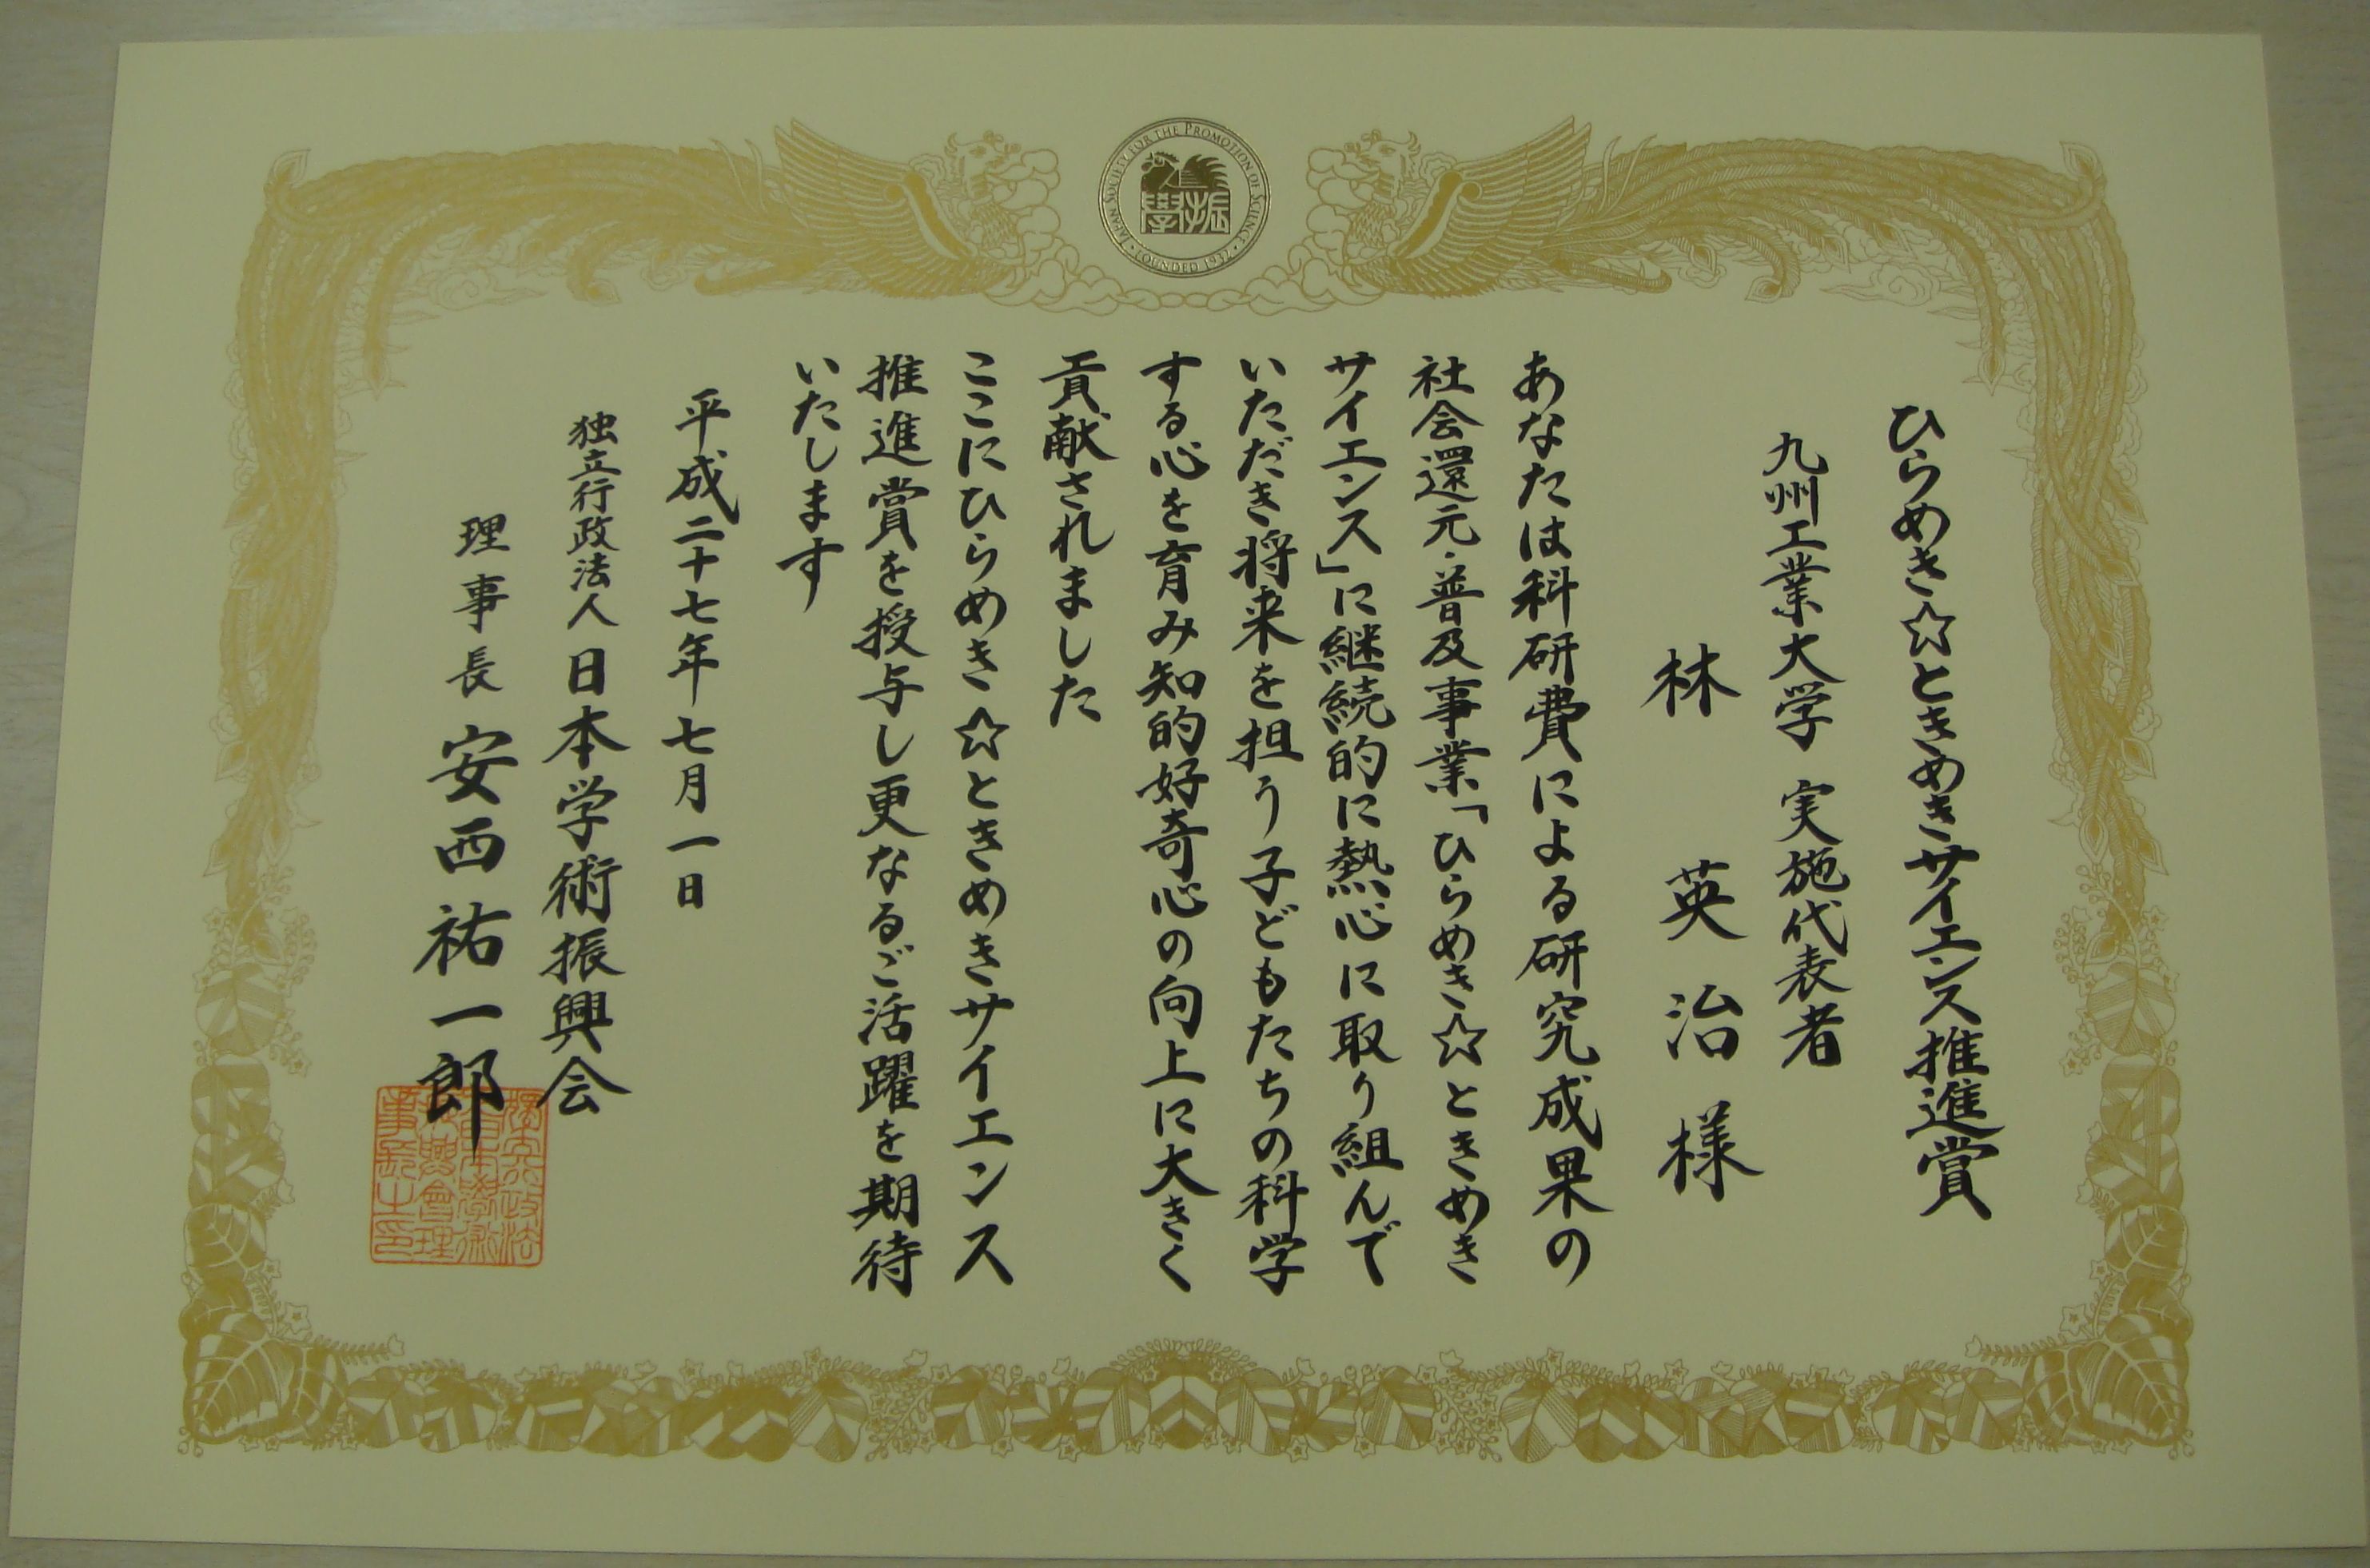 JAPAN SOCIETY FOR THE PROMOTION OF SCIENCE
FOUNDED 1932
ひらめき☆ときめきサイエンス推進賞
九州工業大学 実施代表者
林 英治 様
あなたは科研費による研究成果の
社会還元・普及事業「ひらめき☆ときめき
サイエンス」に継続的に熱心に取り組んで
いただき将来を担う子どもたちの科学
する心を育み知的好奇心の向上に大きく
貢献されました
ここにひらめき☆ときめきサイエンス
推進賞を授与し更なるご活躍を期待
いたします
平成二十七年七月一日
独立行政法人日本学術振興会
理事長 安西祐一郎